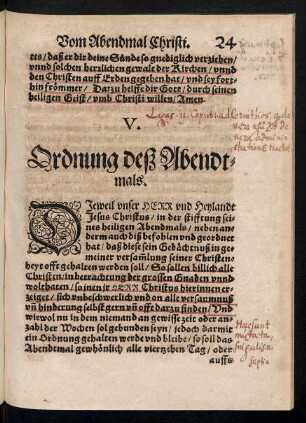 Vom Abendmal Christi. 24
tes/ daß er dir deine Sünde so gnediglich verziehen/
vnnd solchen herrlichen gewalt der Kirchen/ vnnd
den Christen auff Erden gegeben hat/ vnd sey fort-
hin frömmer/ Darzu helffe dir Gott/ durch seinen
heiligen Geist/ vmb Christi willen/ Amen.
V.
Ordnung deß Abendt-
mals.
DJeweil vnser HERR vnd Heylandt
Jesus Christus/ in der stifftung sei-
nes heiligen Abendmals/ neben an-
derm auch diß befohlen vnd geordnet
hat/ daß diese sein Gedächtnuß in ge-
meiner versamlung seiner Christen/
hey offt gehalten werden soll/ So sollen billich alle
Christen/ in betrachtung der grossen Gnaden vnnd
wolthaten/ so inen jr HERR Christus hierinnen er-
zeiget/ sich vnbeschwerlich vnd on alle versaumnuß
vñ hinderung selbst gern vñ offt darzu finden/ Vnd
wiewol nu in dem niemand an gewisse zeit oder an-
zahl der Wochen sol gebunden seyn/ jedoch darmit
ein Ordnung gehalten werde vnd bleibe/ so soll das
Abendmal gewöhnlich alle viertzehen Tag/ oder
auffs